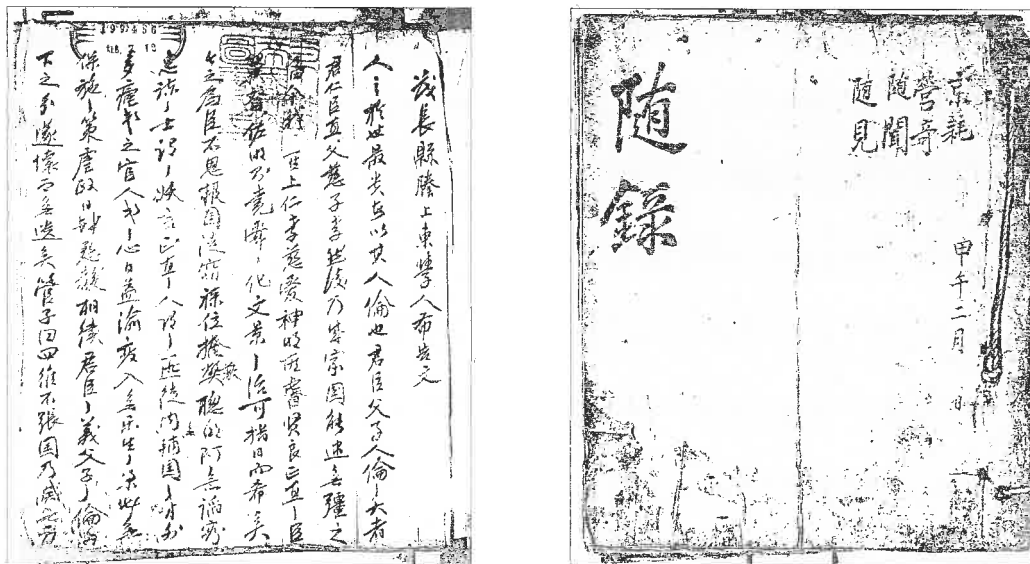 甲午二月 日
京耗
營奇
随聞
随見
随錄
茂長縣謄上東學人布告文
人之於世最貴者以其人倫也君臣父子人倫之大者
君仁臣直父慈子孝然後乃成家國能逮無疆之
聖上仁孝慈愛神明聖睿賢良正直之臣
翼贊佐明則堯舜之化文景之治可指日而希矣
今之爲臣不思報國徒竊祿位掩蔽聰明阿意
忠諫之士謂之妖言正直之人謂之匪徒內無輔國之才外
多虐民之官人民之心日益渝變入無樂生之業出無
保軀之策虐政日肆惡聲相續君臣之義父子之倫上
下之分遂壞而無遺矣管子曰四維不張國乃滅亡方